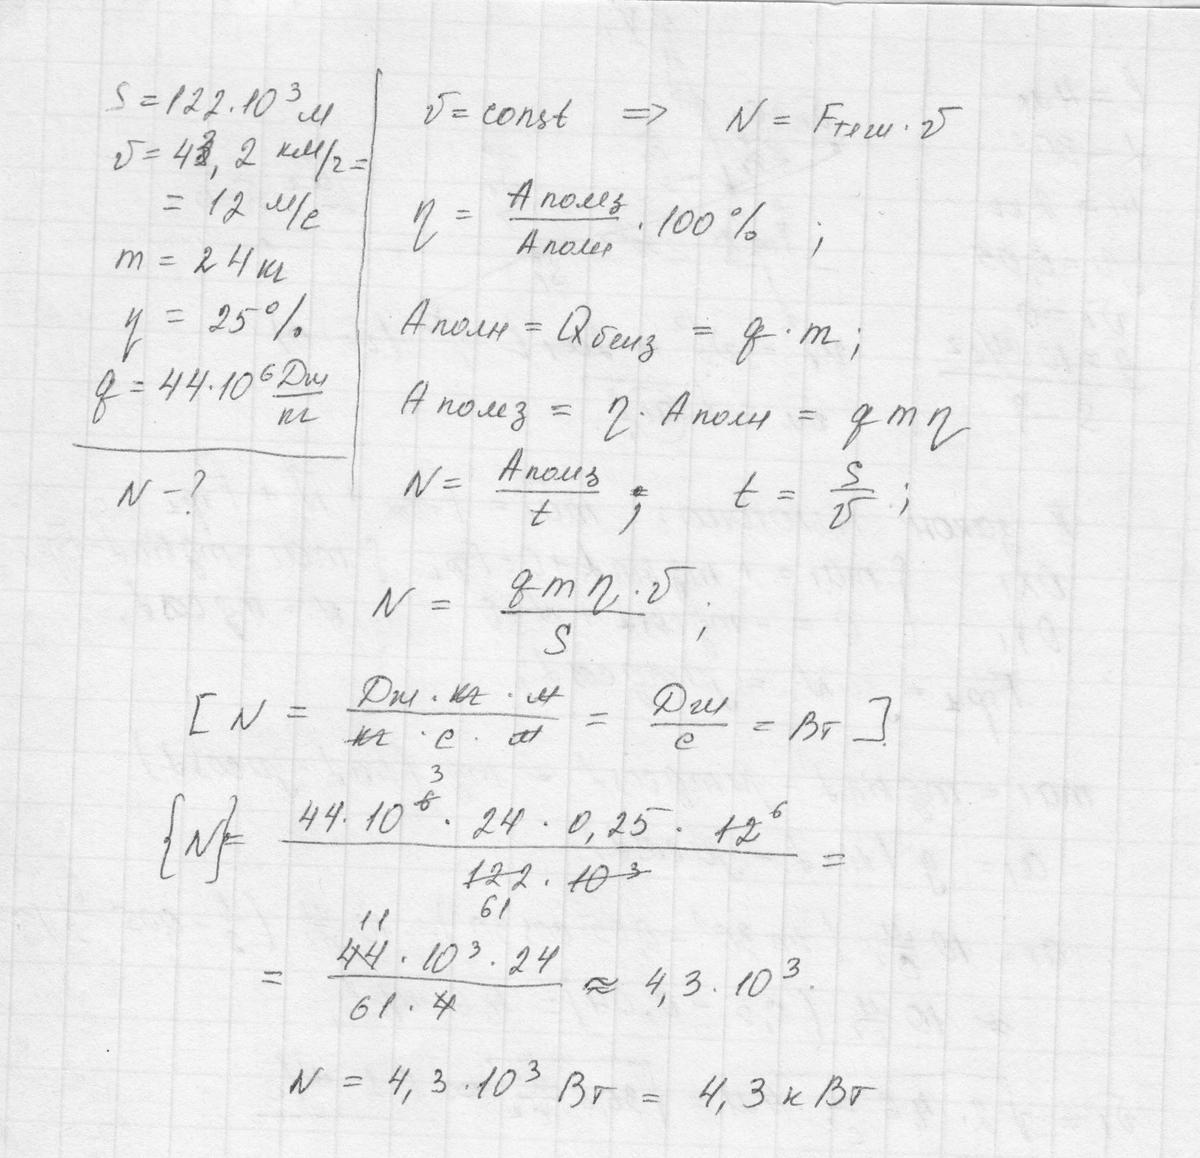 S = 122·10³ м
v = 43,2 км/ч =
= 12 м/с
m = 24 кг
η = 25%
q = 44·10⁶ Дж/кг
N - ?
v = const => N = Fтяги · v
η = Aполез/Aполн · 100% ;
Aполн = Qбенз = q · m ;
Aполез = η · Aполн = q m η
N = Aполез/t ; t = S/v ;
N = q m η · v / S ;
[ N = Дж · кг · м / кг · с · м = Дж/с = Вт ]
{N} = 44·10⁶ ³ · 24 · 0,25 · 12 ⁶ / 122 · 10³ 61 =
= 44 11 · 10³ · 24 / 61 · 4 ≈ 4,3 · 10³
N = 4,3 · 10³ Вт = 4,3 кВт